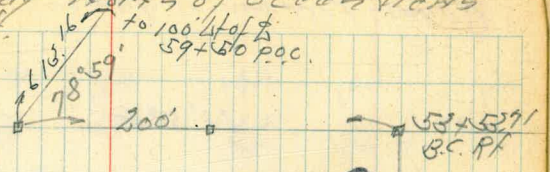 to 100' Lt of ℄
59+50 P.O.C.
613.16
78°59'
200'
53+53.91
B.C. Rt